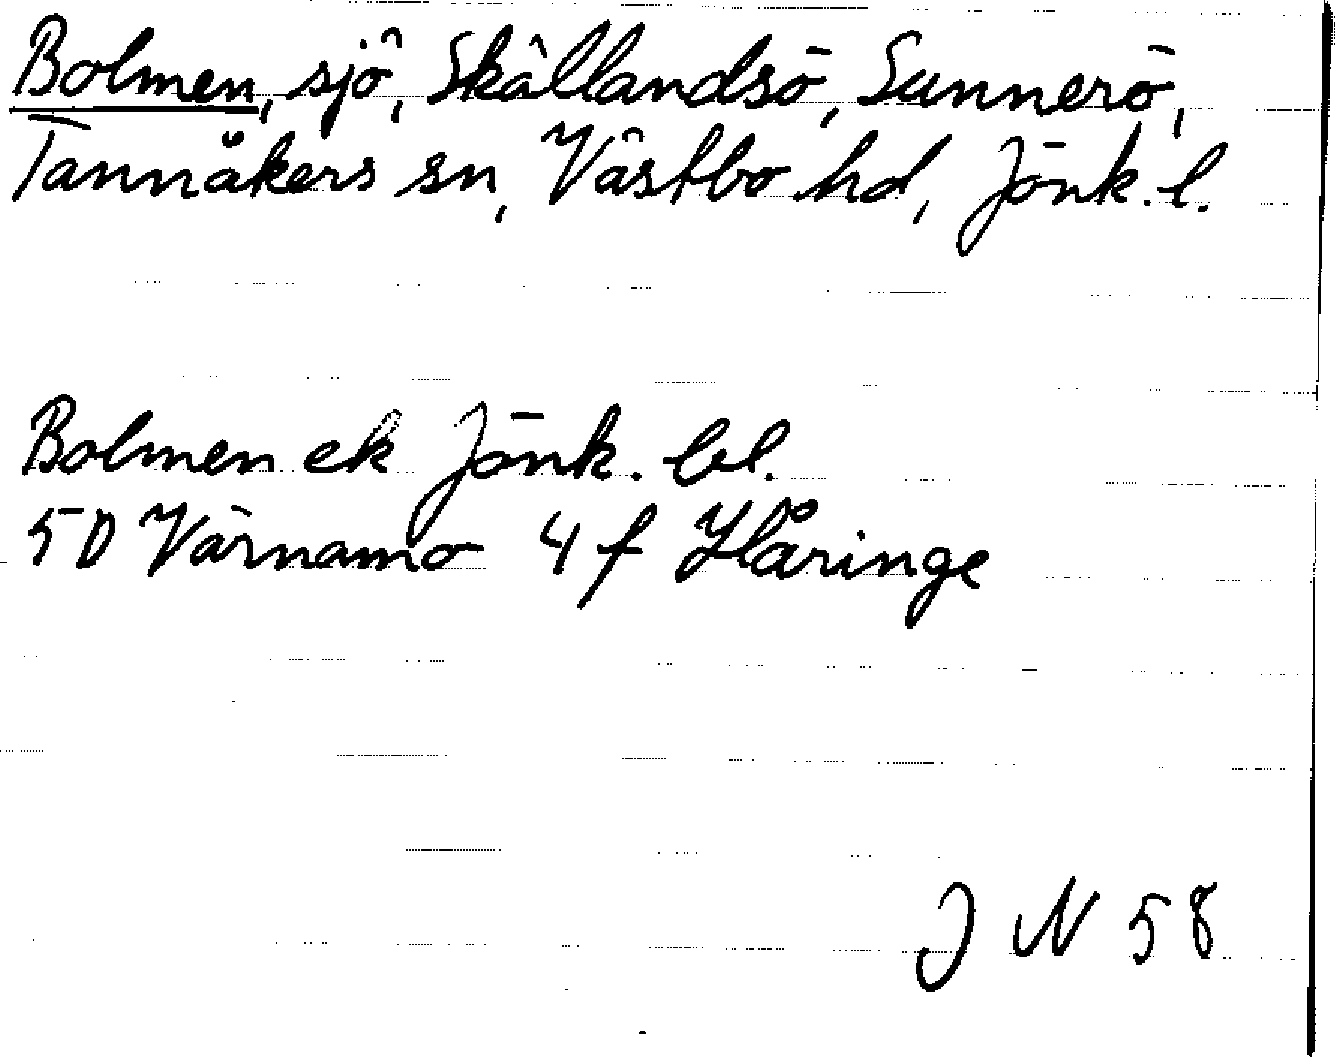 Bolmen, sjö, Skällandsö, Sunnerö,
Tannåkers sn, Västbo hd, Jönk. l.
Bolmen ek Jönk. bl.
5D Värnamo 4 f Håringe
J N 58